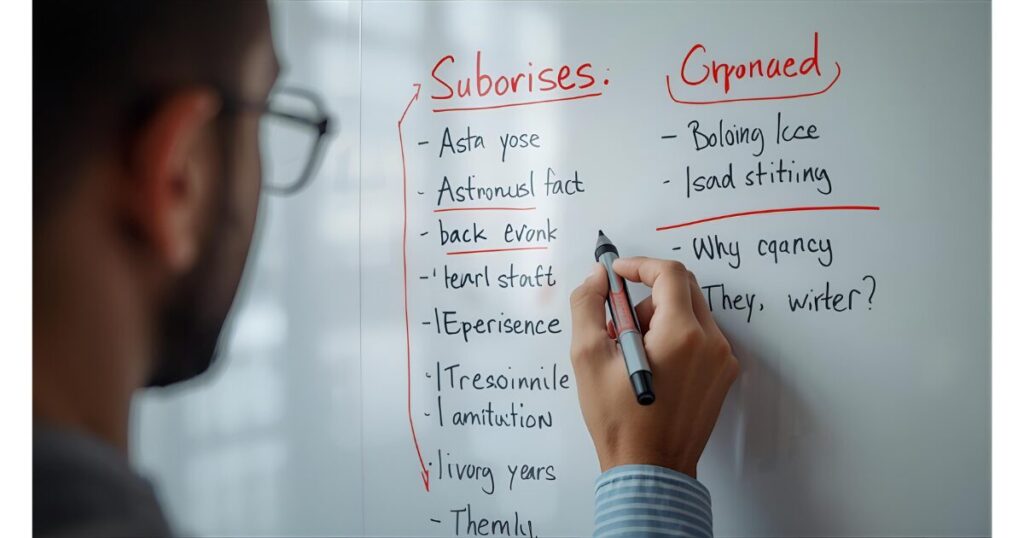 Suborises:
- Asta yose
- Astronusl fact
- back evonk
- 'tenrl staft
- lEperisence
- lTresoinnile
- l amitution
- livorg years
- Themly.
Crponaed
- Boloing lcce
- lsad stitiing
- Why cqancy
They, wirter?